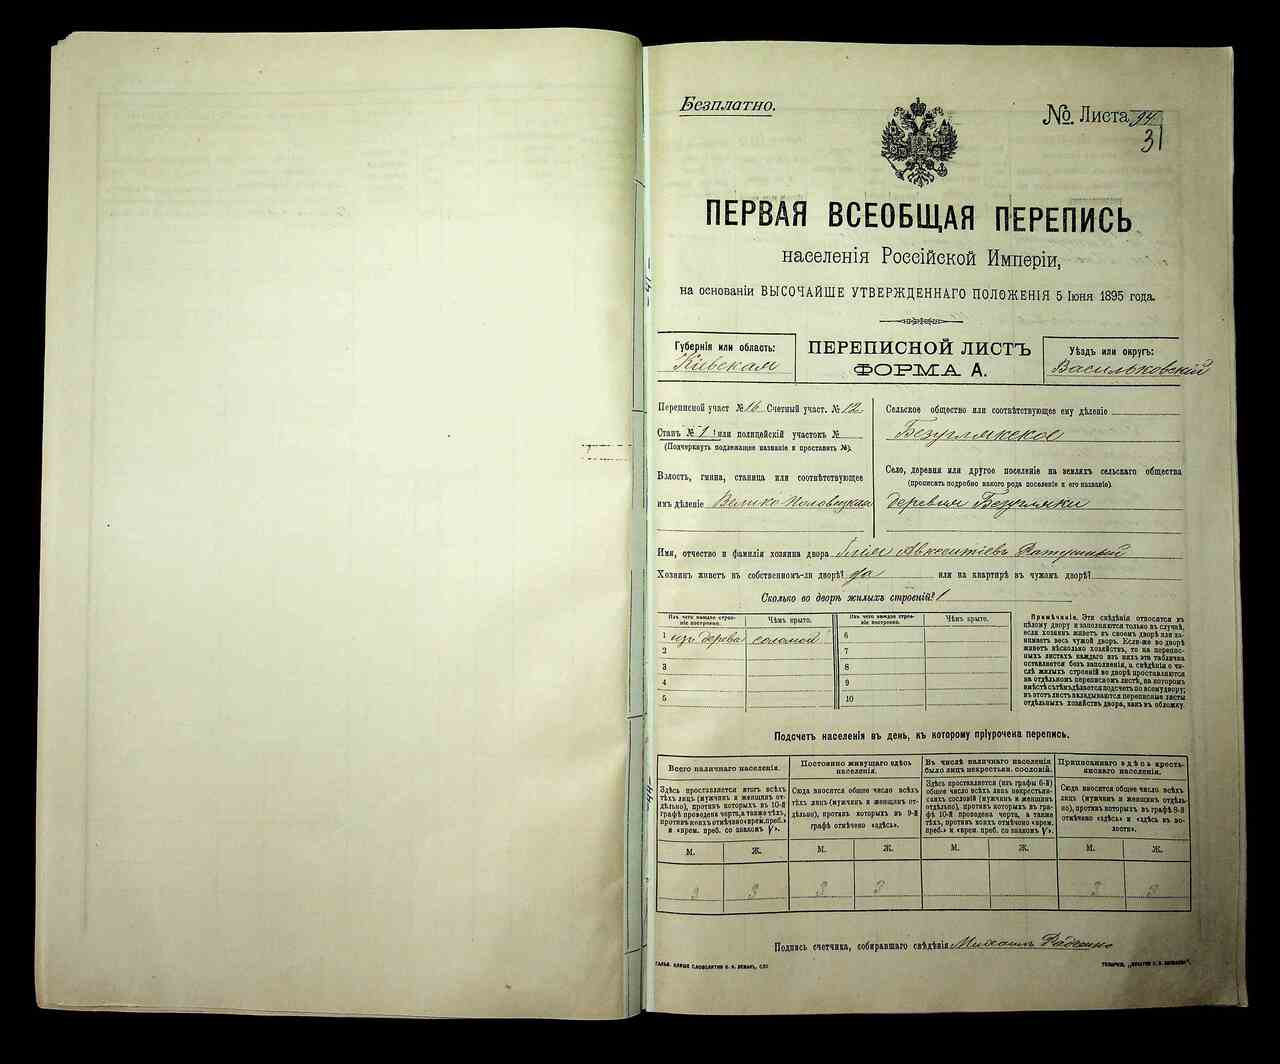 Безплатно.
№ Листа 94
31
ПЕРВАЯ ВСЕОБЩАЯ ПЕРЕПИСЬ
населенія Россійской Имперіи,
на основаніи ВЫСОЧАЙШЕ УТВЕРЖДЕННАГО ПОЛОЖЕНІЯ 5 Іюня 1895 года.
Губернія или область:
Кіевская
ПЕРЕПИСНОЙ ЛИСТЪ
ФОРМА А.
Уѣздъ или округъ:
Васильковскій
Переписной участ №16 Счетный участ. №12
Станъ № 1 или полицейскій участокъ №
(Подчеркнуть подлежащее названіе и проставить №).
Волость, гмина, станица или соотвѣтствующее
имъ дѣленіе Велико-Половецкая
Сельское общество или соотвѣтствующее ему дѣленіе
Безуглякское
Село, деревня или другое поселеніе на земляхъ сельскаго общества
(прописать подробно какого рода поселеніе и его названіе).
деревня Безугляки
Имя, отчество и фамилія хозяина двора Илія Авксентіевъ Ратушный
Хозяинъ живетъ въ собственномъ-ли дворѣ? да или на квартирѣ въ чужомъ дворѣ?
Сколько во дворѣ жилыхъ строеній? 1
Изъ чего каждое строеніе построено. Чѣмъ крыто. Изъ чего каждое строеніе построено. Чѣмъ крыто.
1 изъ дерева соломой 6
2 7
3 8
4 9
5 10
Примѣчаніе. Эти свѣдѣнія относятся къ
цѣлому двору и заполняются только въ случаѣ,
если хозяинъ живетъ въ своемъ дворѣ или занимаетъ
весь чужой дворъ. Если-же во дворѣ
живетъ нѣсколько хозяйствъ, то на переписныхъ
листахъ каждаго изъ нихъ эта табличка
оставляется безъ заполненія, а свѣдѣнія о числѣ
жилыхъ строеній во дворѣ проставляются
на отдѣльномъ переписномъ листѣ, на которомъ
вмѣстѣ съ тѣмъ дѣлается подсчетъ по всему двору;
въ этотъ листъ вкладываются переписные листы
отдѣльныхъ хозяйствъ двора, какъ въ обложку.
Подсчетъ населенія въ день, къ которому пріурочена перепись.
Всего наличнаго населенія.
Здѣсь проставляется итогъ всѣхъ
тѣхъ лицъ (мужчинъ и женщинъ отдѣльно),
противъ которыхъ въ 10-й
графѣ проведена черта, а также тѣхъ,
противъ коихъ отмѣчено «врем. преб.»
и «врем. преб. со знакомъ V».
Постоянно живущаго здѣсь
населенія.
Сюда вносится общее число всѣхъ
тѣхъ лицъ (мужчинъ и женщинъ отдѣльно),
противъ которыхъ въ 9-й
графѣ отмѣчено «здѣсь».
Въ числѣ наличнаго населенія
было лицъ некрестьян. сословій.
Здѣсь проставляется (изъ графы 6-й)
общее число всѣхъ лицъ некрестьянскихъ
сословій (мужчинъ и женщинъ
отдѣльно), противъ которыхъ въ графѣ
10-й проведена черта, а также
тѣхъ, противъ коихъ отмѣчено «врем.
преб.» и «врем. преб. со знакомъ V».
Приписаннаго здѣсь крестьянскаго
населенія.
Сюда вносится общее число всѣхъ
лицъ (мужчинъ и женщинъ отдѣльно),
противъ которыхъ въ графѣ 8-й
отмѣчено «здѣсь» и «здѣсь въ волости».
М. Ж. М. Ж. М. Ж. М. Ж.
3 3 3 3 3 3
Подпись счетчика, собиравшаго свѣдѣнія Михаилъ